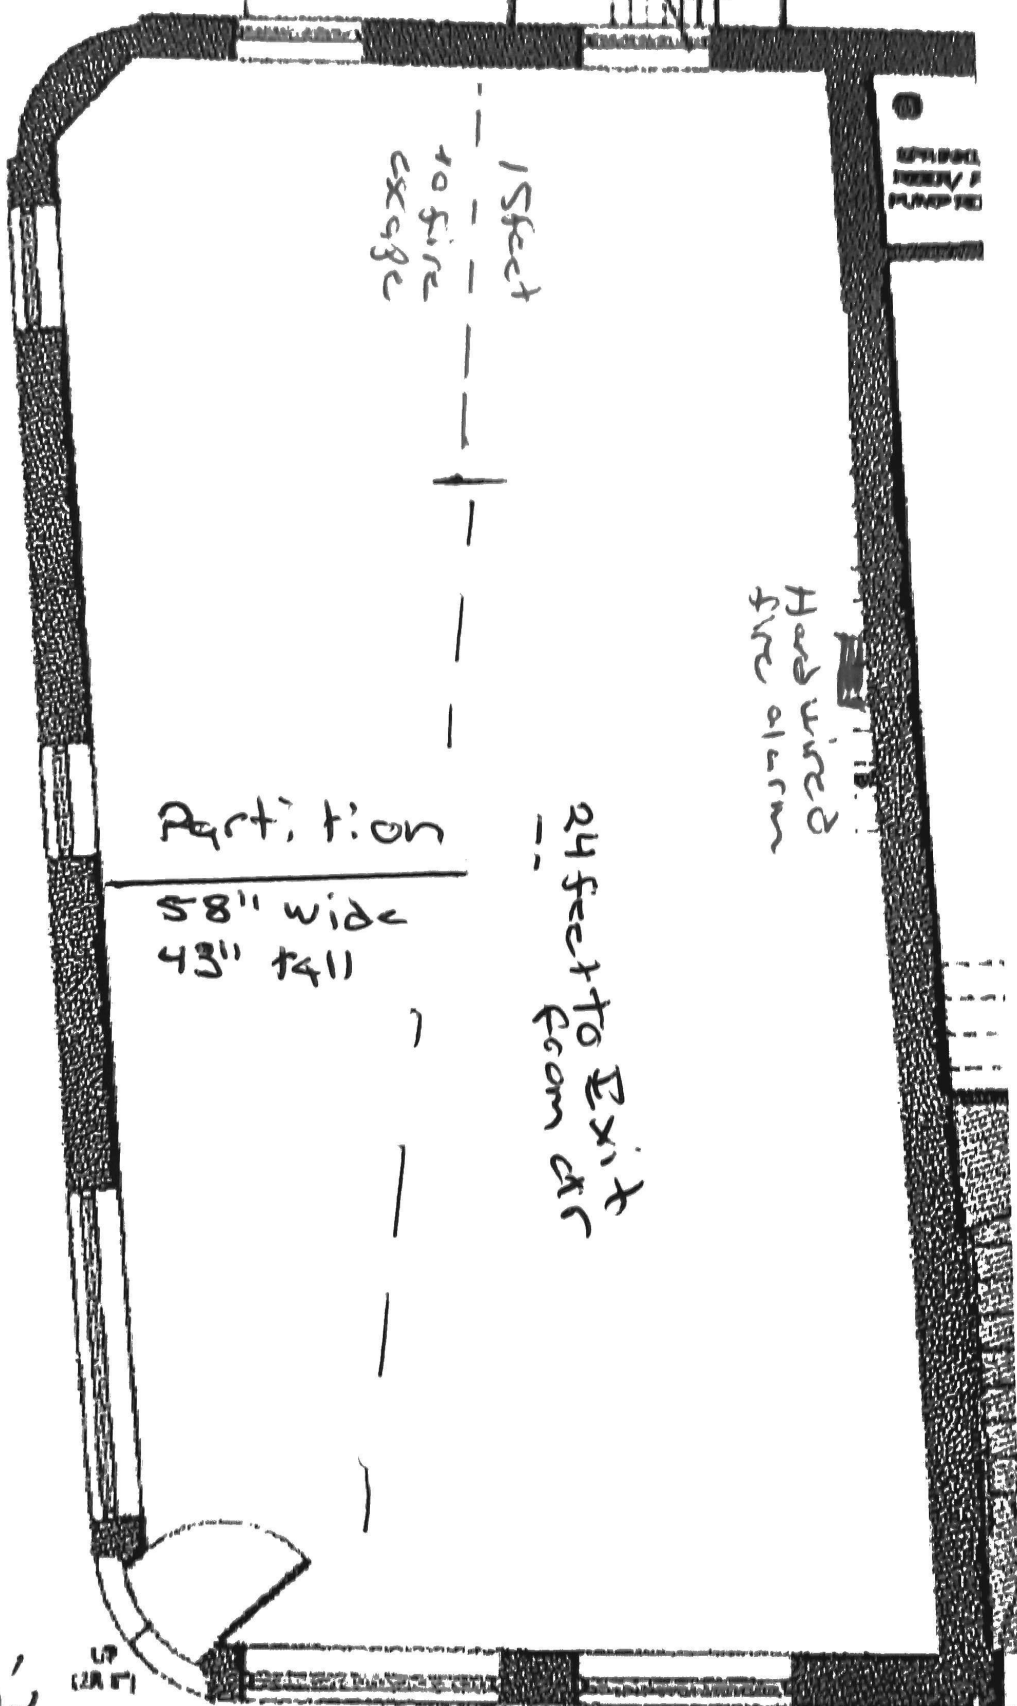 15 feet
to fire
exscape
Hard wired
fire alarm
Partition
58" wide
43" tall
24 feet to Exit
from dr
UP
(2R 8")